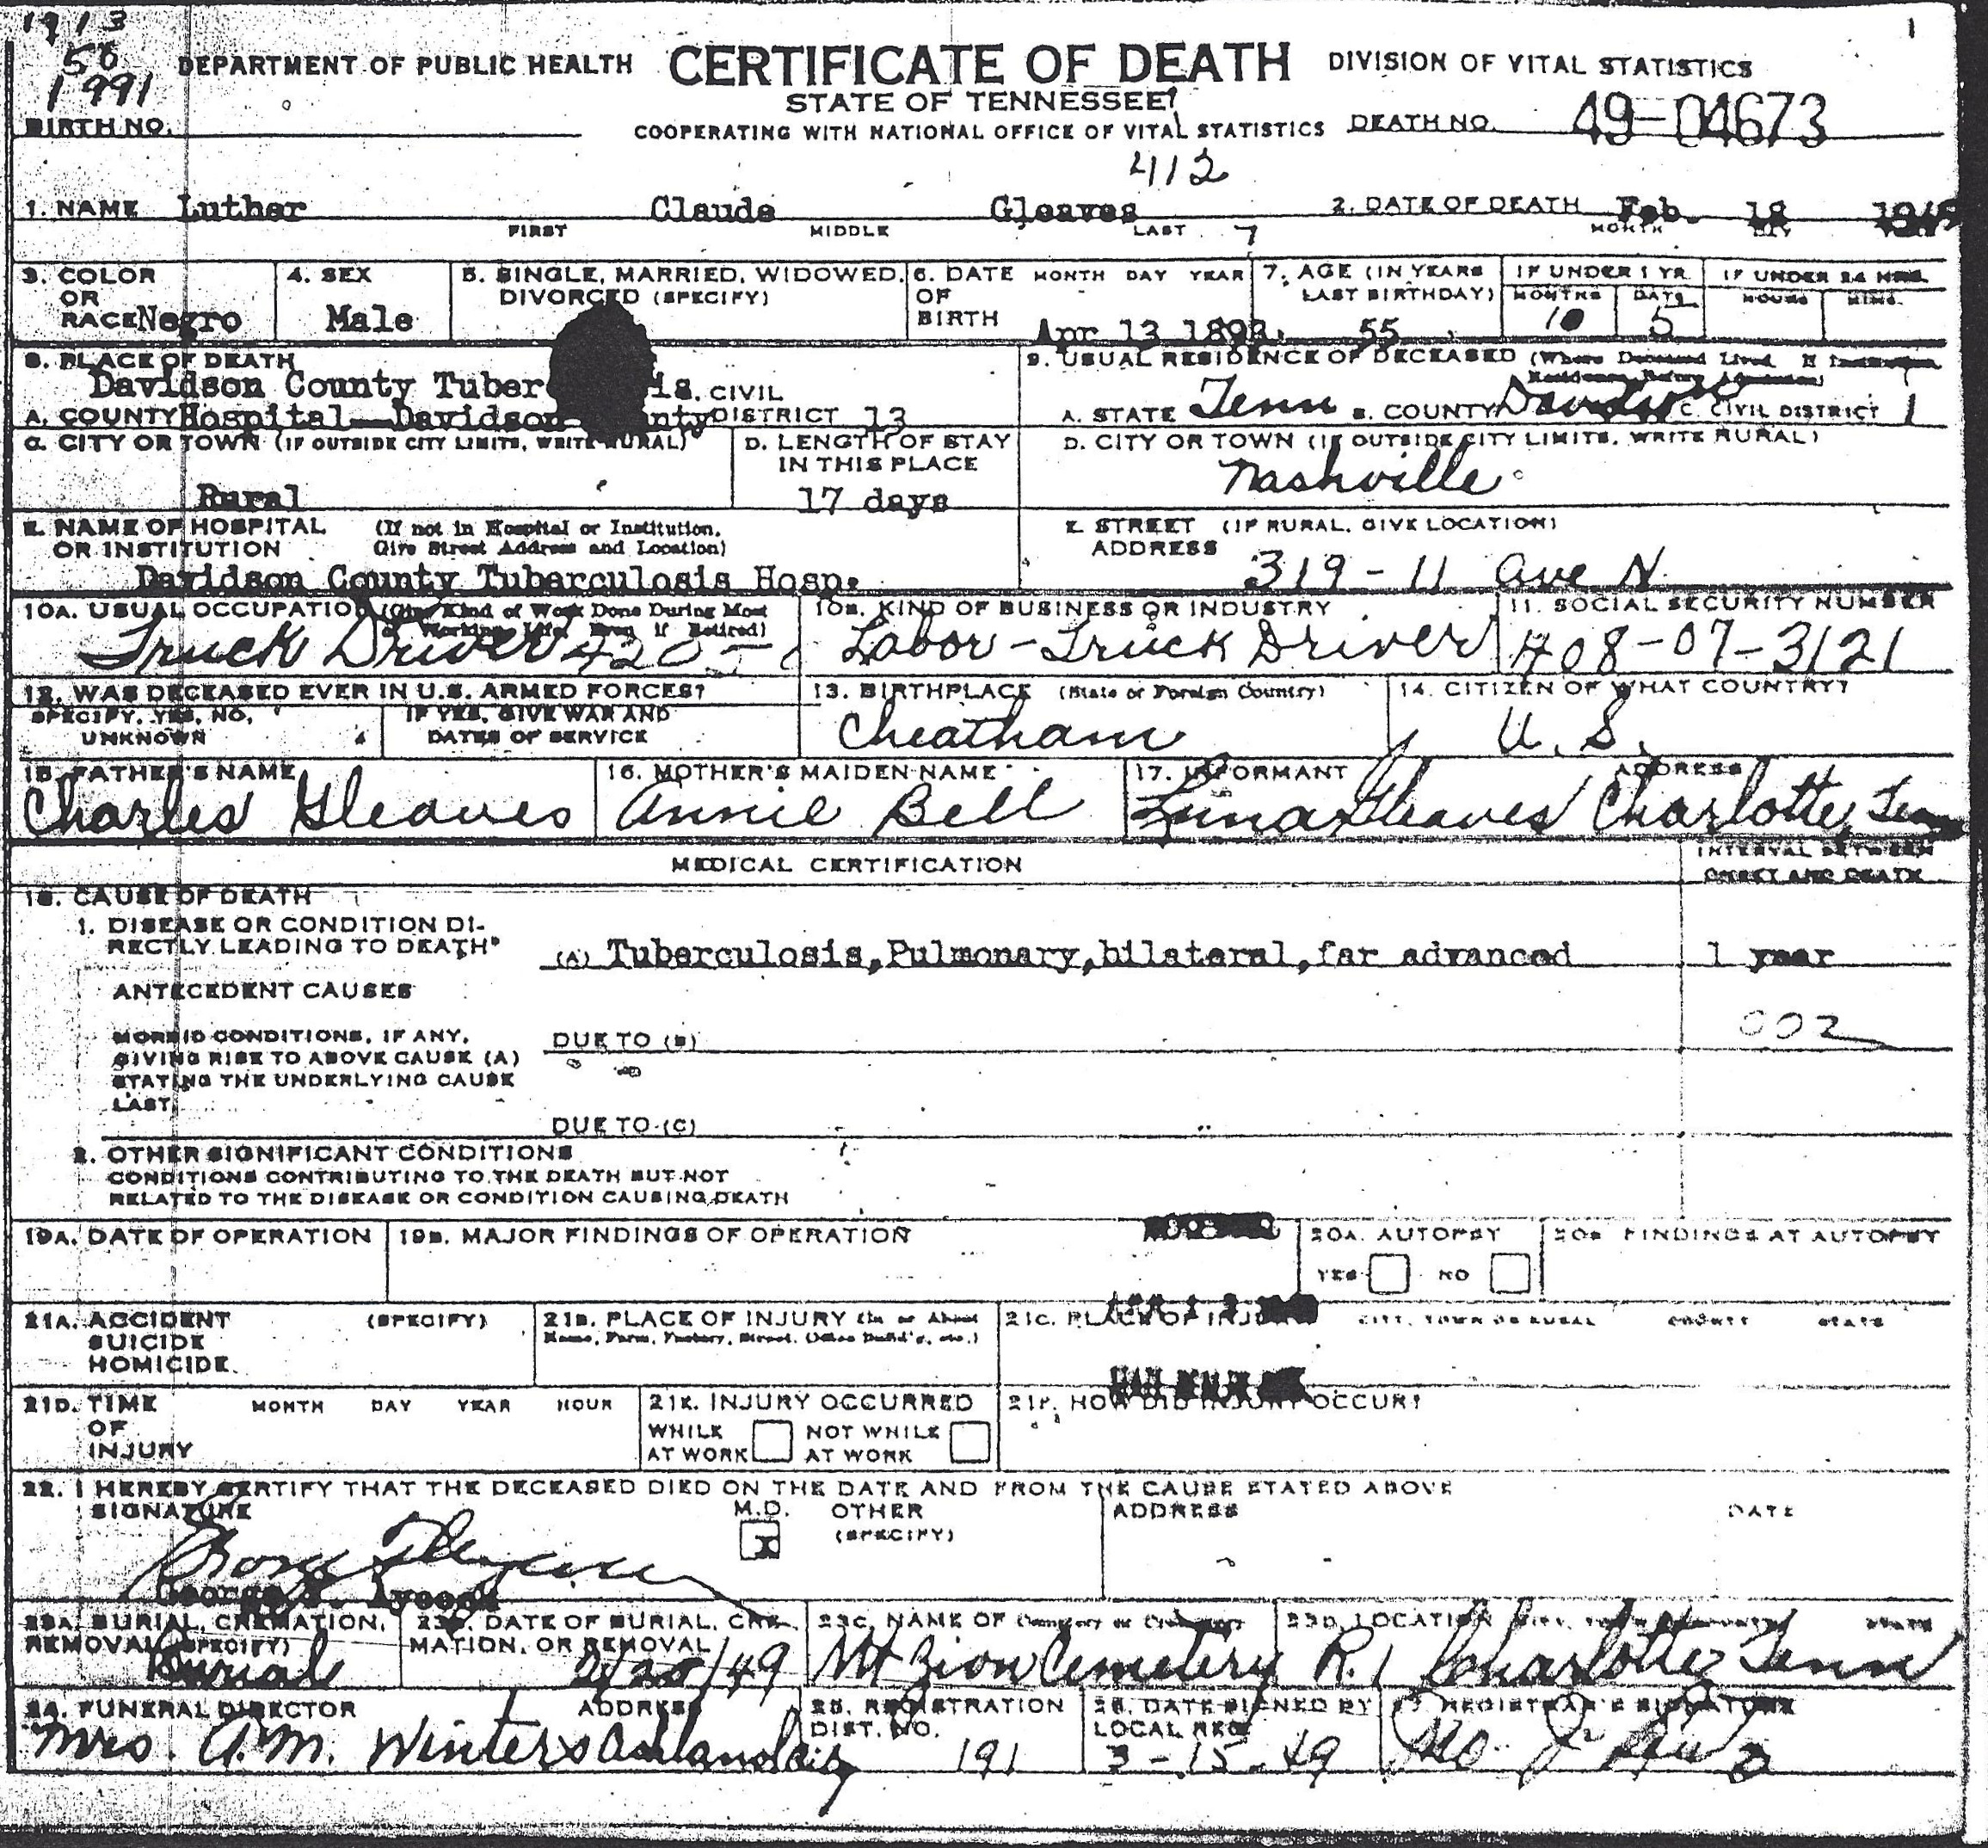 1913
50
1991
DEPARTMENT OF PUBLIC HEALTH CERTIFICATE OF DEATH DIVISION OF VITAL STATISTICS
STATE OF TENNESSEE
BIRTH NO. COOPERATING WITH NATIONAL OFFICE OF VITAL STATISTICS DEATH NO. 49-04673
412
1. NAME Luther Claude Gleaves 2. DATE OF DEATH Feb. 18
FIRST MIDDLE LAST 7 MONTH DAY
3. COLOR OR RACE Negro
4. SEX Male
5. SINGLE, MARRIED, WIDOWED, DIVORCED (SPECIFY)
6. DATE OF BIRTH MONTH DAY YEAR Apr 13 1893
7. AGE (IN YEARS LAST BIRTHDAY) 55
IF UNDER 1 YR. MONTHS 10 DAYS 5
IF UNDER 24 HRS. HOURS MINS.
8. PLACE OF DEATH
Davidson County
A. COUNTY Hospital—Davidson CIVIL DISTRICT 13
C. CITY OR TOWN (IF OUTSIDE CITY LIMITS, WRITE RURAL)
Rural
D. LENGTH OF STAY IN THIS PLACE
17 days
E. NAME OF HOSPITAL OR INSTITUTION (If not in Hospital or Institution, Give Street Address and Location)
Davidson County Tuberculosis Hosp.
9. USUAL RESIDENCE OF DECEASED (Where Deceased Lived. If Institution, Residence Before Admission)
A. STATE Tenn B. COUNTY Davidson C. CIVIL DISTRICT 1
D. CITY OR TOWN (IF OUTSIDE CITY LIMITS, WRITE RURAL)
Nashville
E. STREET ADDRESS (IF RURAL, GIVE LOCATION)
319-11 Ave N.
10A. USUAL OCCUPATION (Give Kind of Work Done During Most of Working Life, Even if Retired)
Truck Driver
10B. KIND OF BUSINESS OR INDUSTRY
Labor-Truck Driver
11. SOCIAL SECURITY NUMBER
408-07-3121
12. WAS DECEASED EVER IN U.S. ARMED FORCES?
SPECIFY, YES, NO, UNKNOWN
IF YES, GIVE WAR AND DATES OF SERVICE
13. BIRTHPLACE (State or Foreign Country)
Cheatham
14. CITIZEN OF WHAT COUNTRY?
U. S.
15. FATHER'S NAME
Charles Gleaves
16. MOTHER'S MAIDEN NAME
Annie Bell
17. INFORMANT ADDRESS
Gleaves Charlotte, Tenn
MEDICAL CERTIFICATION
INTERVAL BETWEEN ONSET AND DEATH
18. CAUSE OF DEATH
1. DISEASE OR CONDITION DIRECTLY LEADING TO DEATH*
(A) Tuberculosis,Pulmonary,bilateral,far advanced 1 year
ANTECEDENT CAUSES
002
MORBID CONDITIONS, IF ANY, GIVING RISE TO ABOVE CAUSE (A) STATING THE UNDERLYING CAUSE LAST.
DUE TO (B)
DUE TO (C)
2. OTHER SIGNIFICANT CONDITIONS
CONDITIONS CONTRIBUTING TO THE DEATH BUT NOT
RELATED TO THE DISEASE OR CONDITION CAUSING DEATH
19A. DATE OF OPERATION
19B. MAJOR FINDINGS OF OPERATION
20A. AUTOPSY
YES NO
20B. FINDINGS AT AUTOPSY
21A. ACCIDENT SUICIDE HOMICIDE (SPECIFY)
21B. PLACE OF INJURY (In or About Home, Farm, Factory, Street, Office Build'g, etc.)
21C. PLACE OF INJURY CITY, TOWN OR RURAL COUNTY STATE
21D. TIME OF INJURY MONTH DAY YEAR HOUR
21E. INJURY OCCURRED
WHILE AT WORK NOT WHILE AT WORK
21F. HOW DID INJURY OCCUR?
22. I HEREBY CERTIFY THAT THE DECEASED DIED ON THE DATE AND FROM THE CAUSE STATED ABOVE
SIGNATURE M.D. x OTHER (SPECIFY) ADDRESS DATE
George
23A. BURIAL, CREMATION, REMOVAL (SPECIFY)
Burial
23B. DATE OF BURIAL, CREMATION, OR REMOVAL
2/20/49
23C. NAME OF Cemetery or Crematory
Mt Zion Cemetery
23D. LOCATION STATE
R.1 Charlotte Tenn
24. FUNERAL DIRECTOR ADDRESS
Mrs. A.M. Winters
25. REGISTRATION DIST. NO.
191
26. DATE SIGNED BY LOCAL REG.
3-15-49
27. REGISTRAR'S SIGNATURE